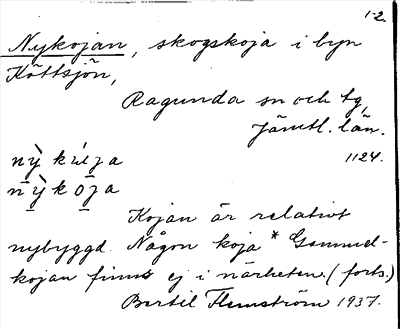 1-2.
Nykojan, skogskoja i byn
Köttsjön,
Ragunda sn och tg,
Jämtl. län.
1124.
nỳ kúi̯a
nȳ̀kōja
Kojan är relativt
nybyggd. Någon koja * Gammel-
kojan finns ej i närheten. (forts.)
Bertil Flemström 1937.